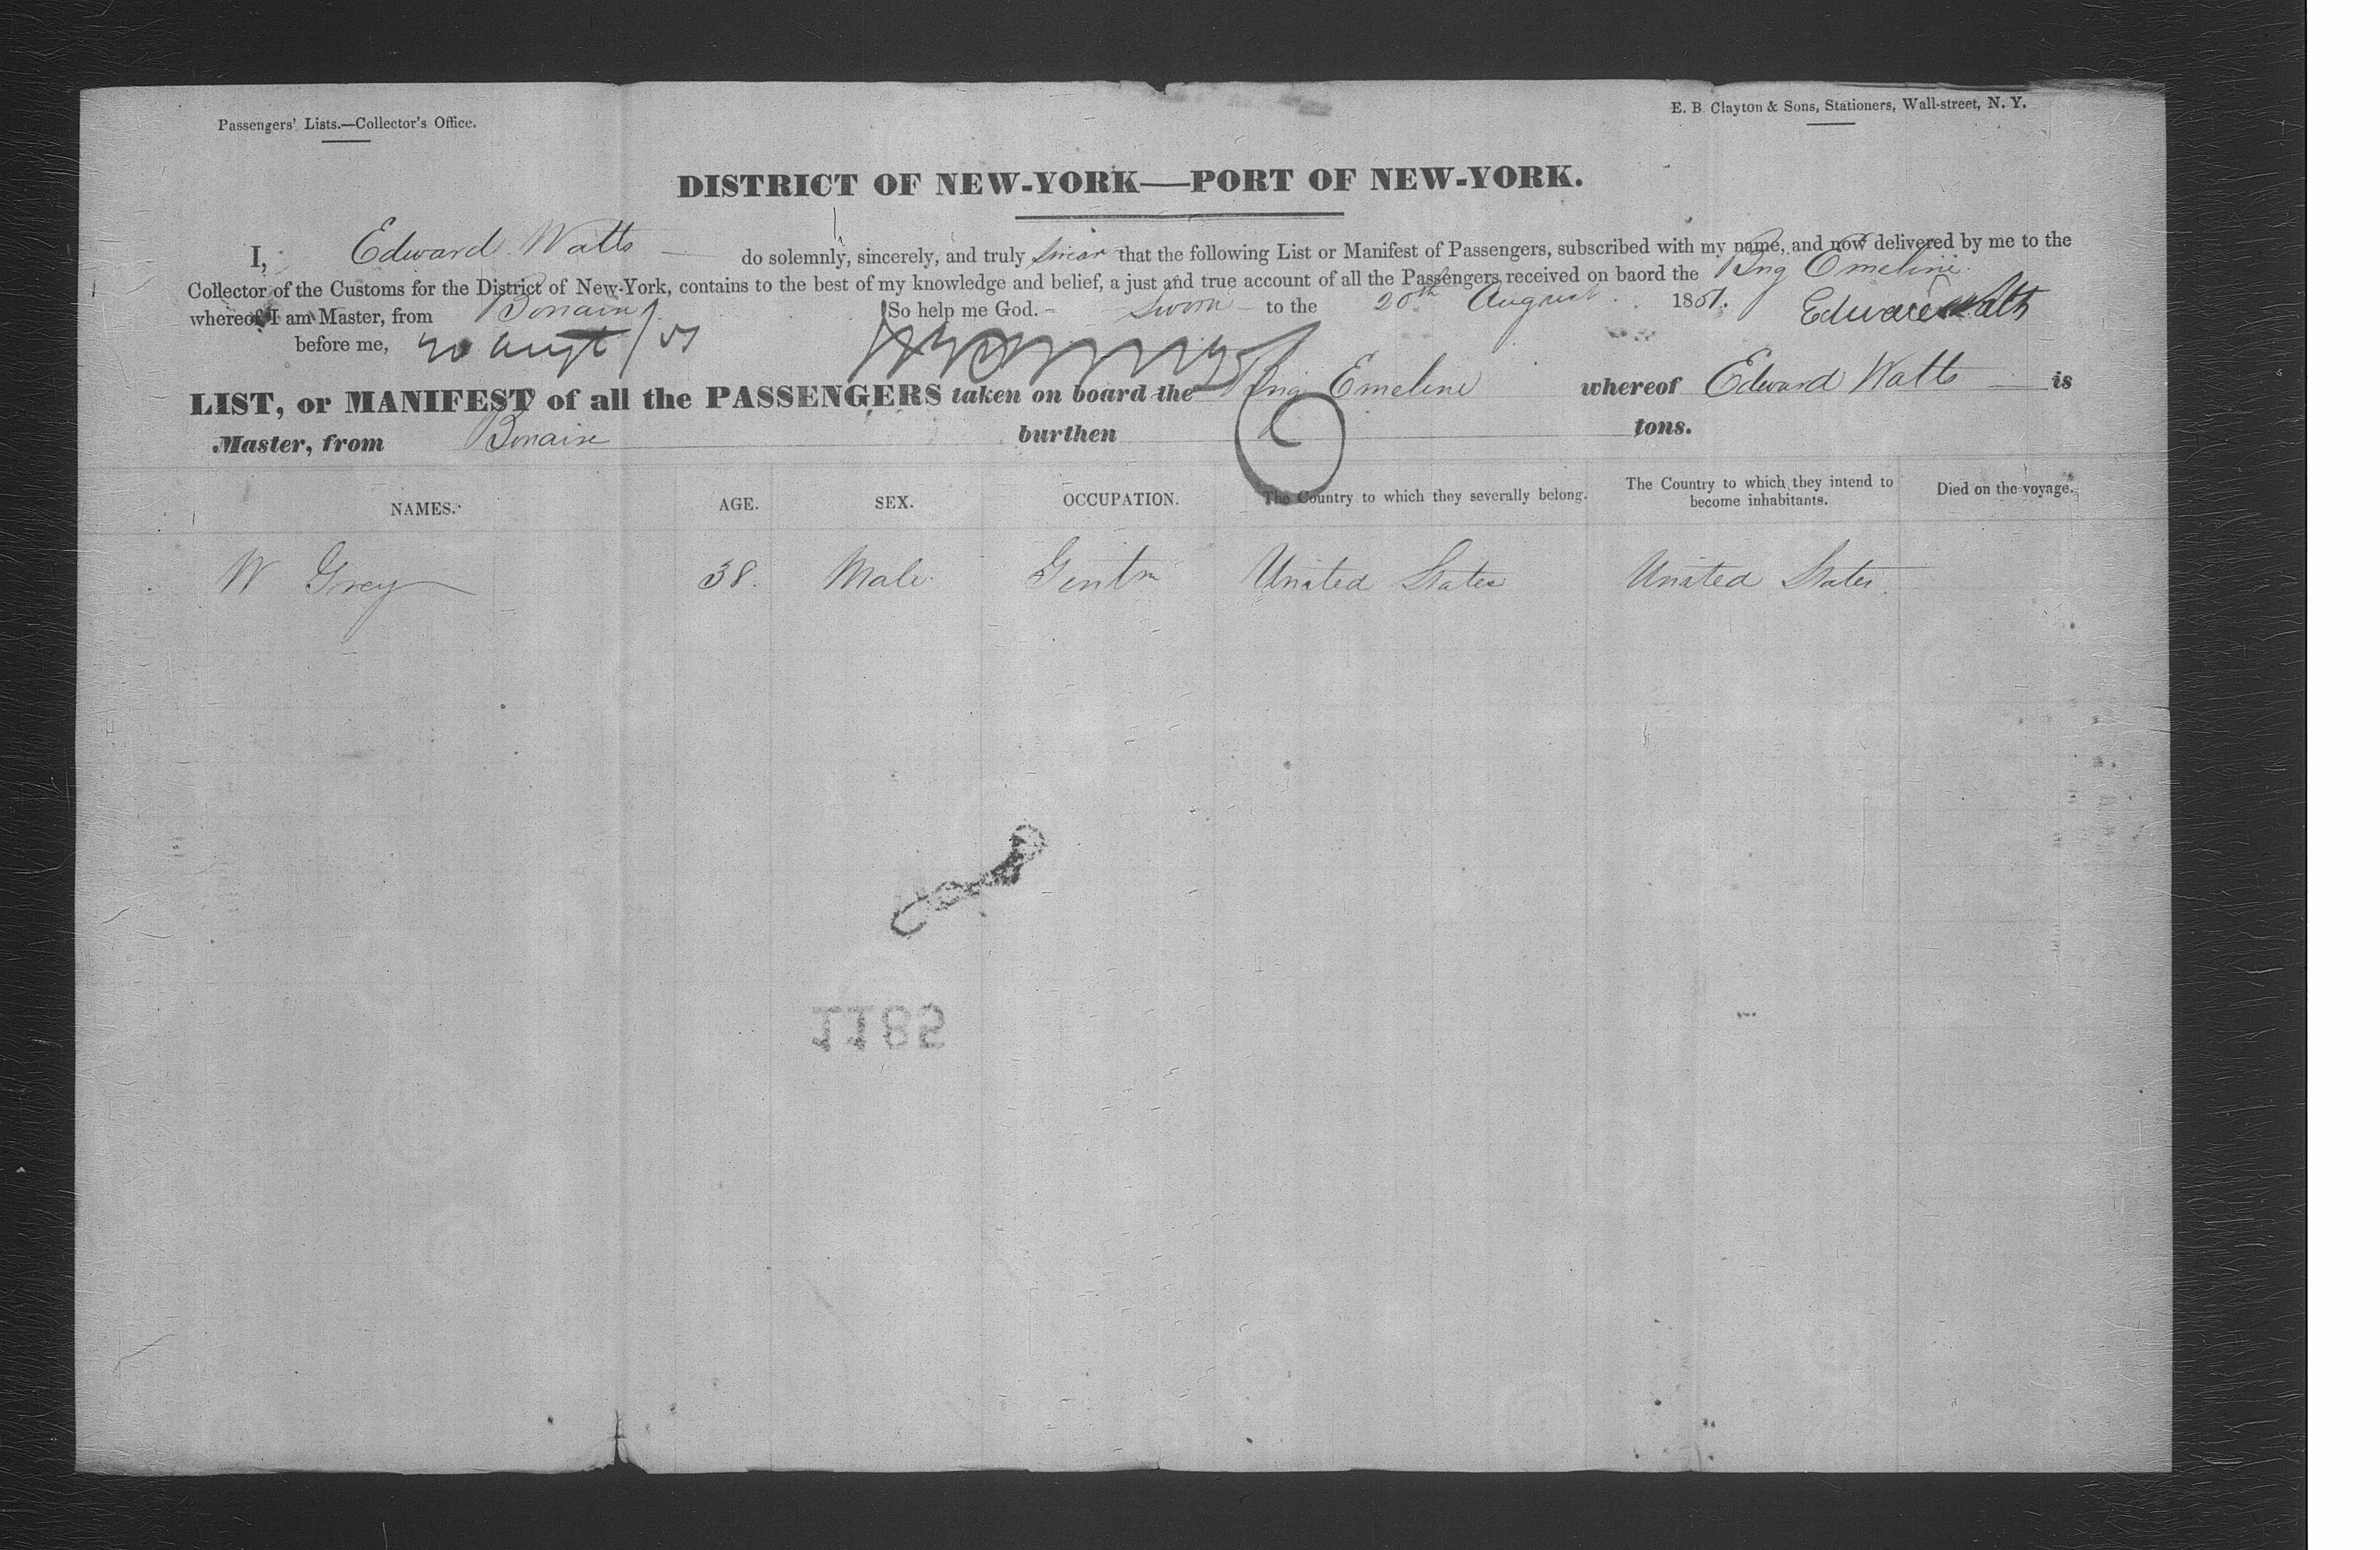 Passengers' Lists.—Collector's Office.
E. B. Clayton & Sons, Stationers, Wall-street, N. Y.
DISTRICT OF NEW-YORK—PORT OF NEW-YORK.
I, Edward Watts do solemnly, sincerely, and truly swear that the following List or Manifest of Passengers, subscribed with my name, and now delivered by me to the
Collector of the Customs for the District of New-York, contains to the best of my knowledge and belief, a just and true account of all the Passengers received on baord the Brig Emeline
whereof I am Master, from Bonaire So help me God. - Sworn - to the 20th August 1851. Edward Watts
before me, 20 Augt/51
LIST, or MANIFEST of all the PASSENGERS taken on board the Brig Emeline whereof Edward Watts is
Master, from Bonaire burthen tons.
NAMES. AGE. SEX. OCCUPATION. The Country to which they severally belong. The Country to which they intend to become inhabitants. Died on the voyage.
W Grey 38. Male Gentn United States United States
1185